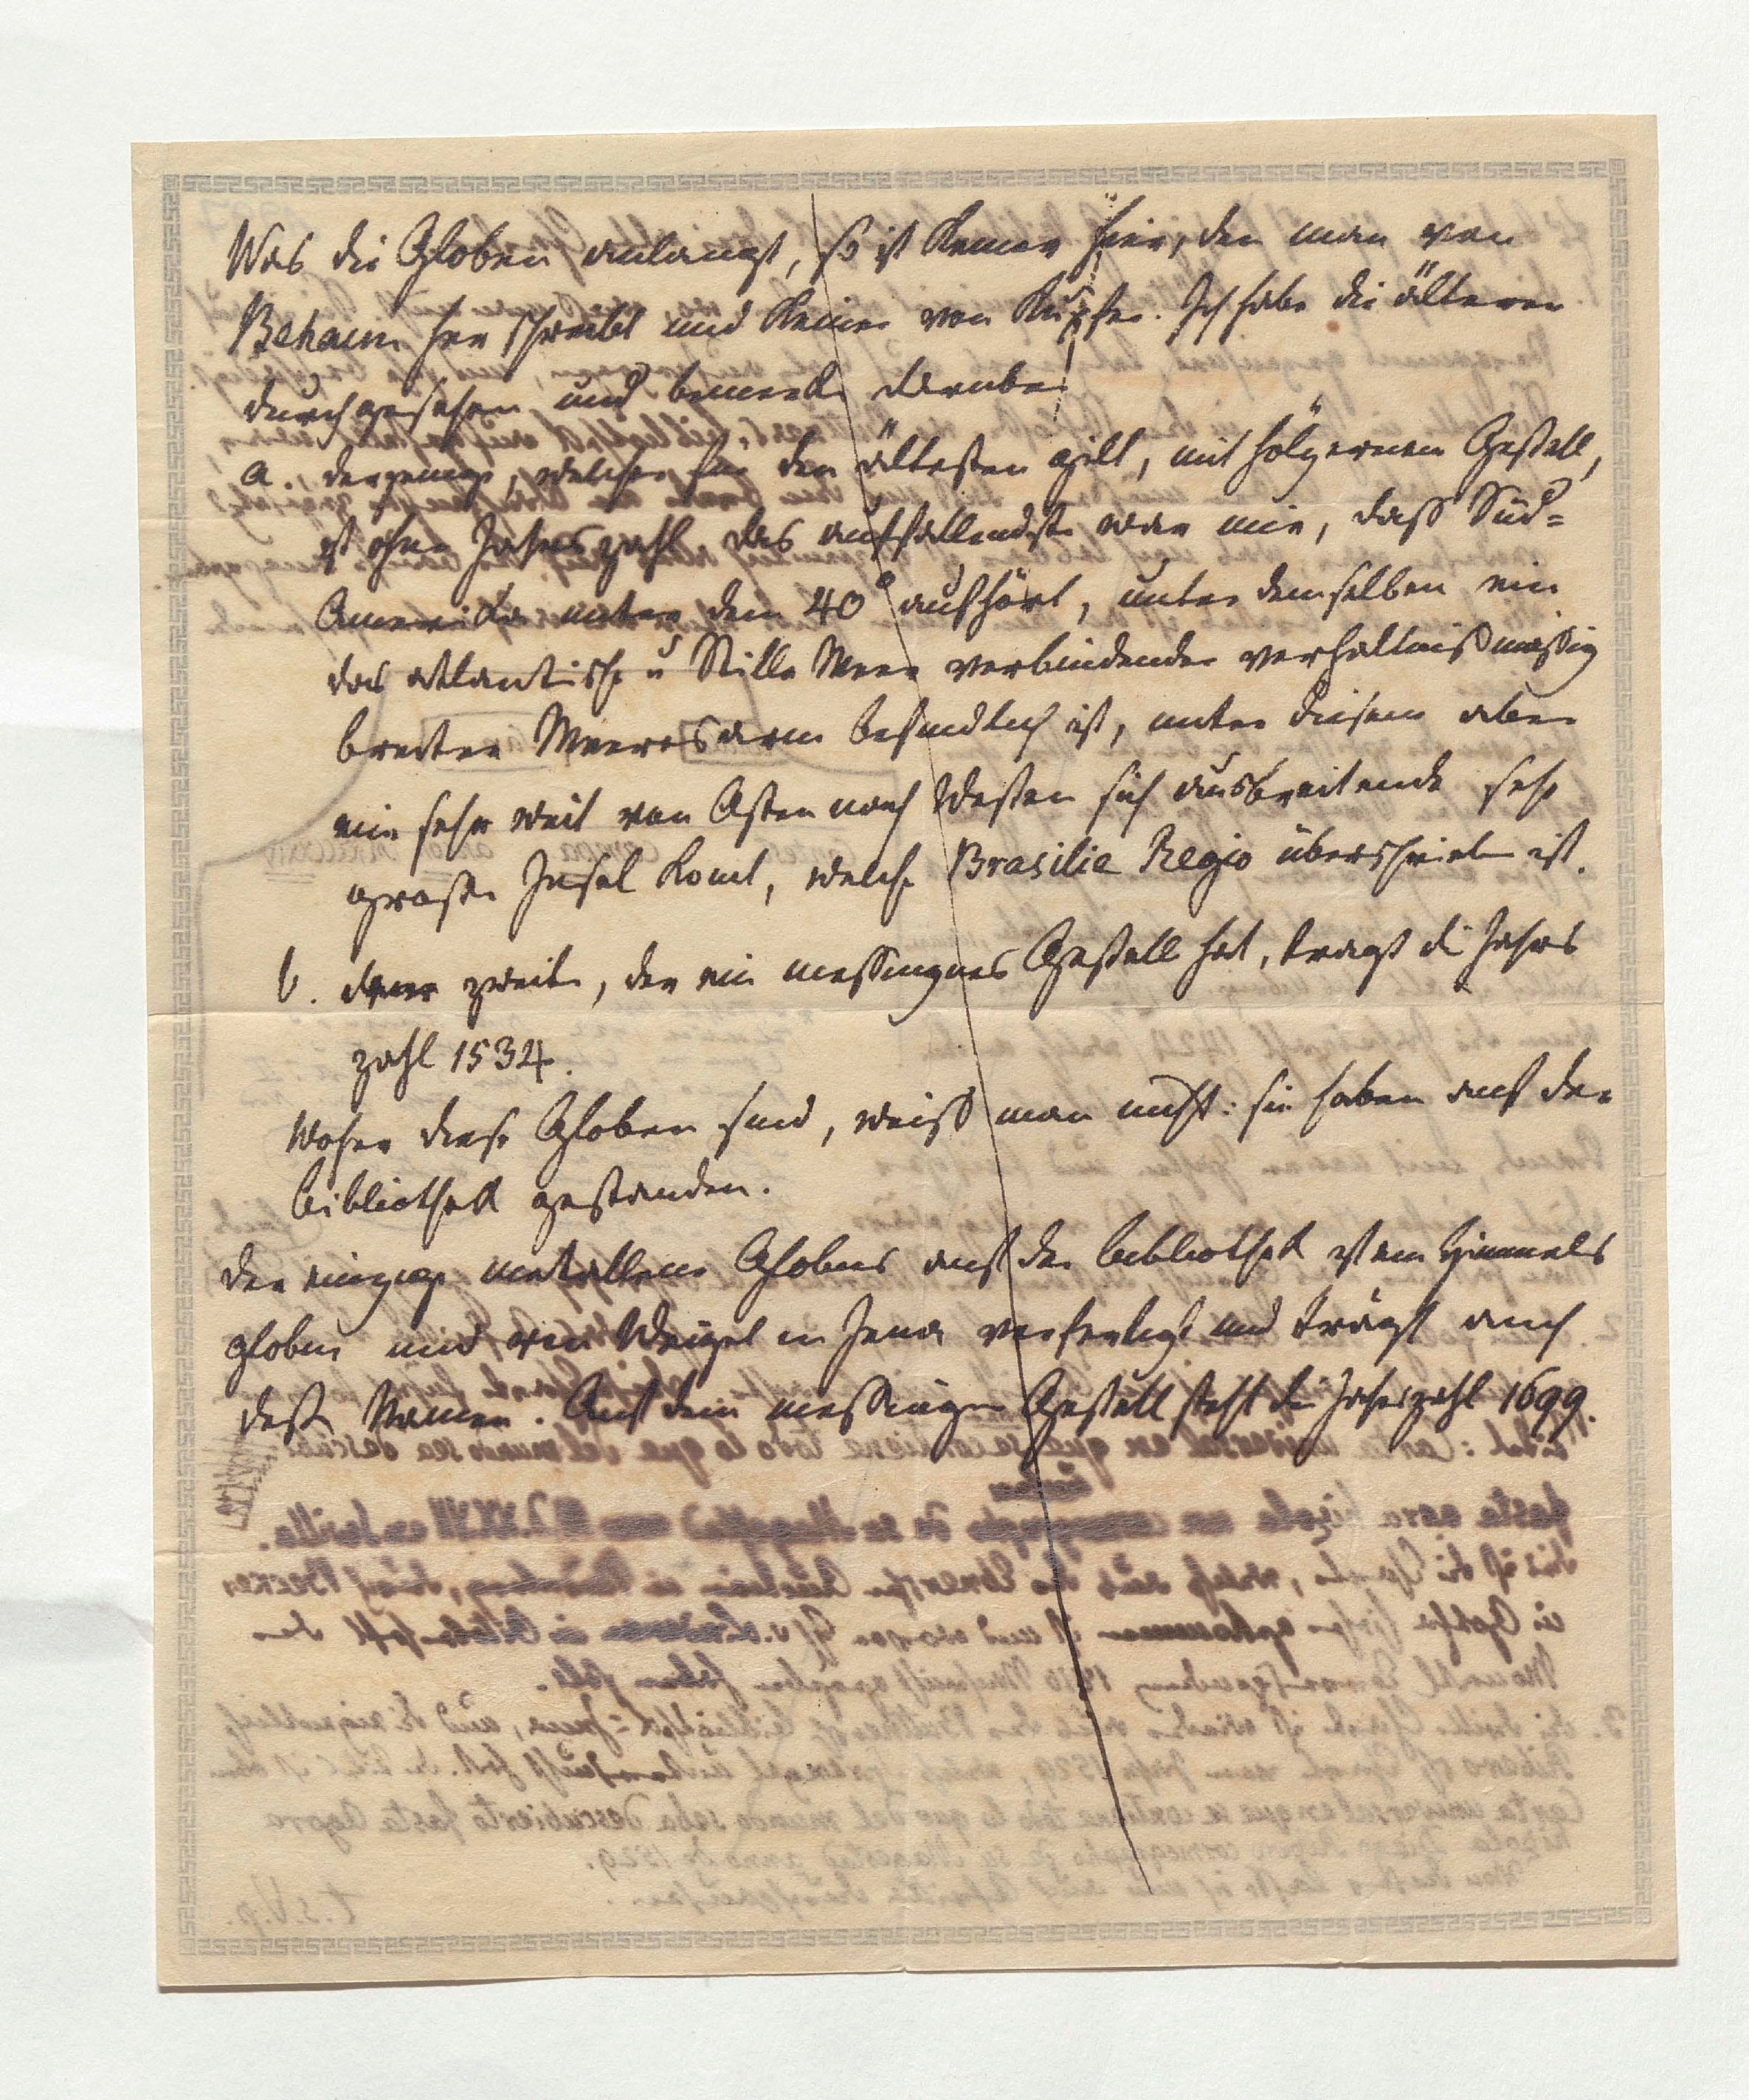 Was die Globen anlangt, so ist keiner hier, den man von
Behaim her schreibt und keiner von Kupfer. Ich habe die älteren
durchgesehen und bemerke darüber
a. derjenige, welcher für den ältesten gilt, mit hölzernem Gestell,
ist ohne Jahrszahl das auffallendste war mir, dass Süd=
America unter dem 40° aufhört, unter demselben ein
das atlantische u Stille Meer verbindender verhältnißmässig
breiter Meeresarm befindlich ist, unter diesem aber
eine sehr weit von Osten nach Westen sich ausbreitende sehr
große Insel komt, welche Brasilie Regio überschrieben ist.
b. der zweite, der ein messingnes Gestell hat, tragt die Jahrs
zahl 1534.
Woher diese Globen sind, weiß man nicht: sie haben auf der
Bibliothek gestanden.
der einzige metallene Globus auf der Bibliothek ist ein Himmels
globus und von Weigel in Jena verfertigt und trägt auch
deßen Namen. Auf dem messingen Gestell steht die Jahrszahl 1699.